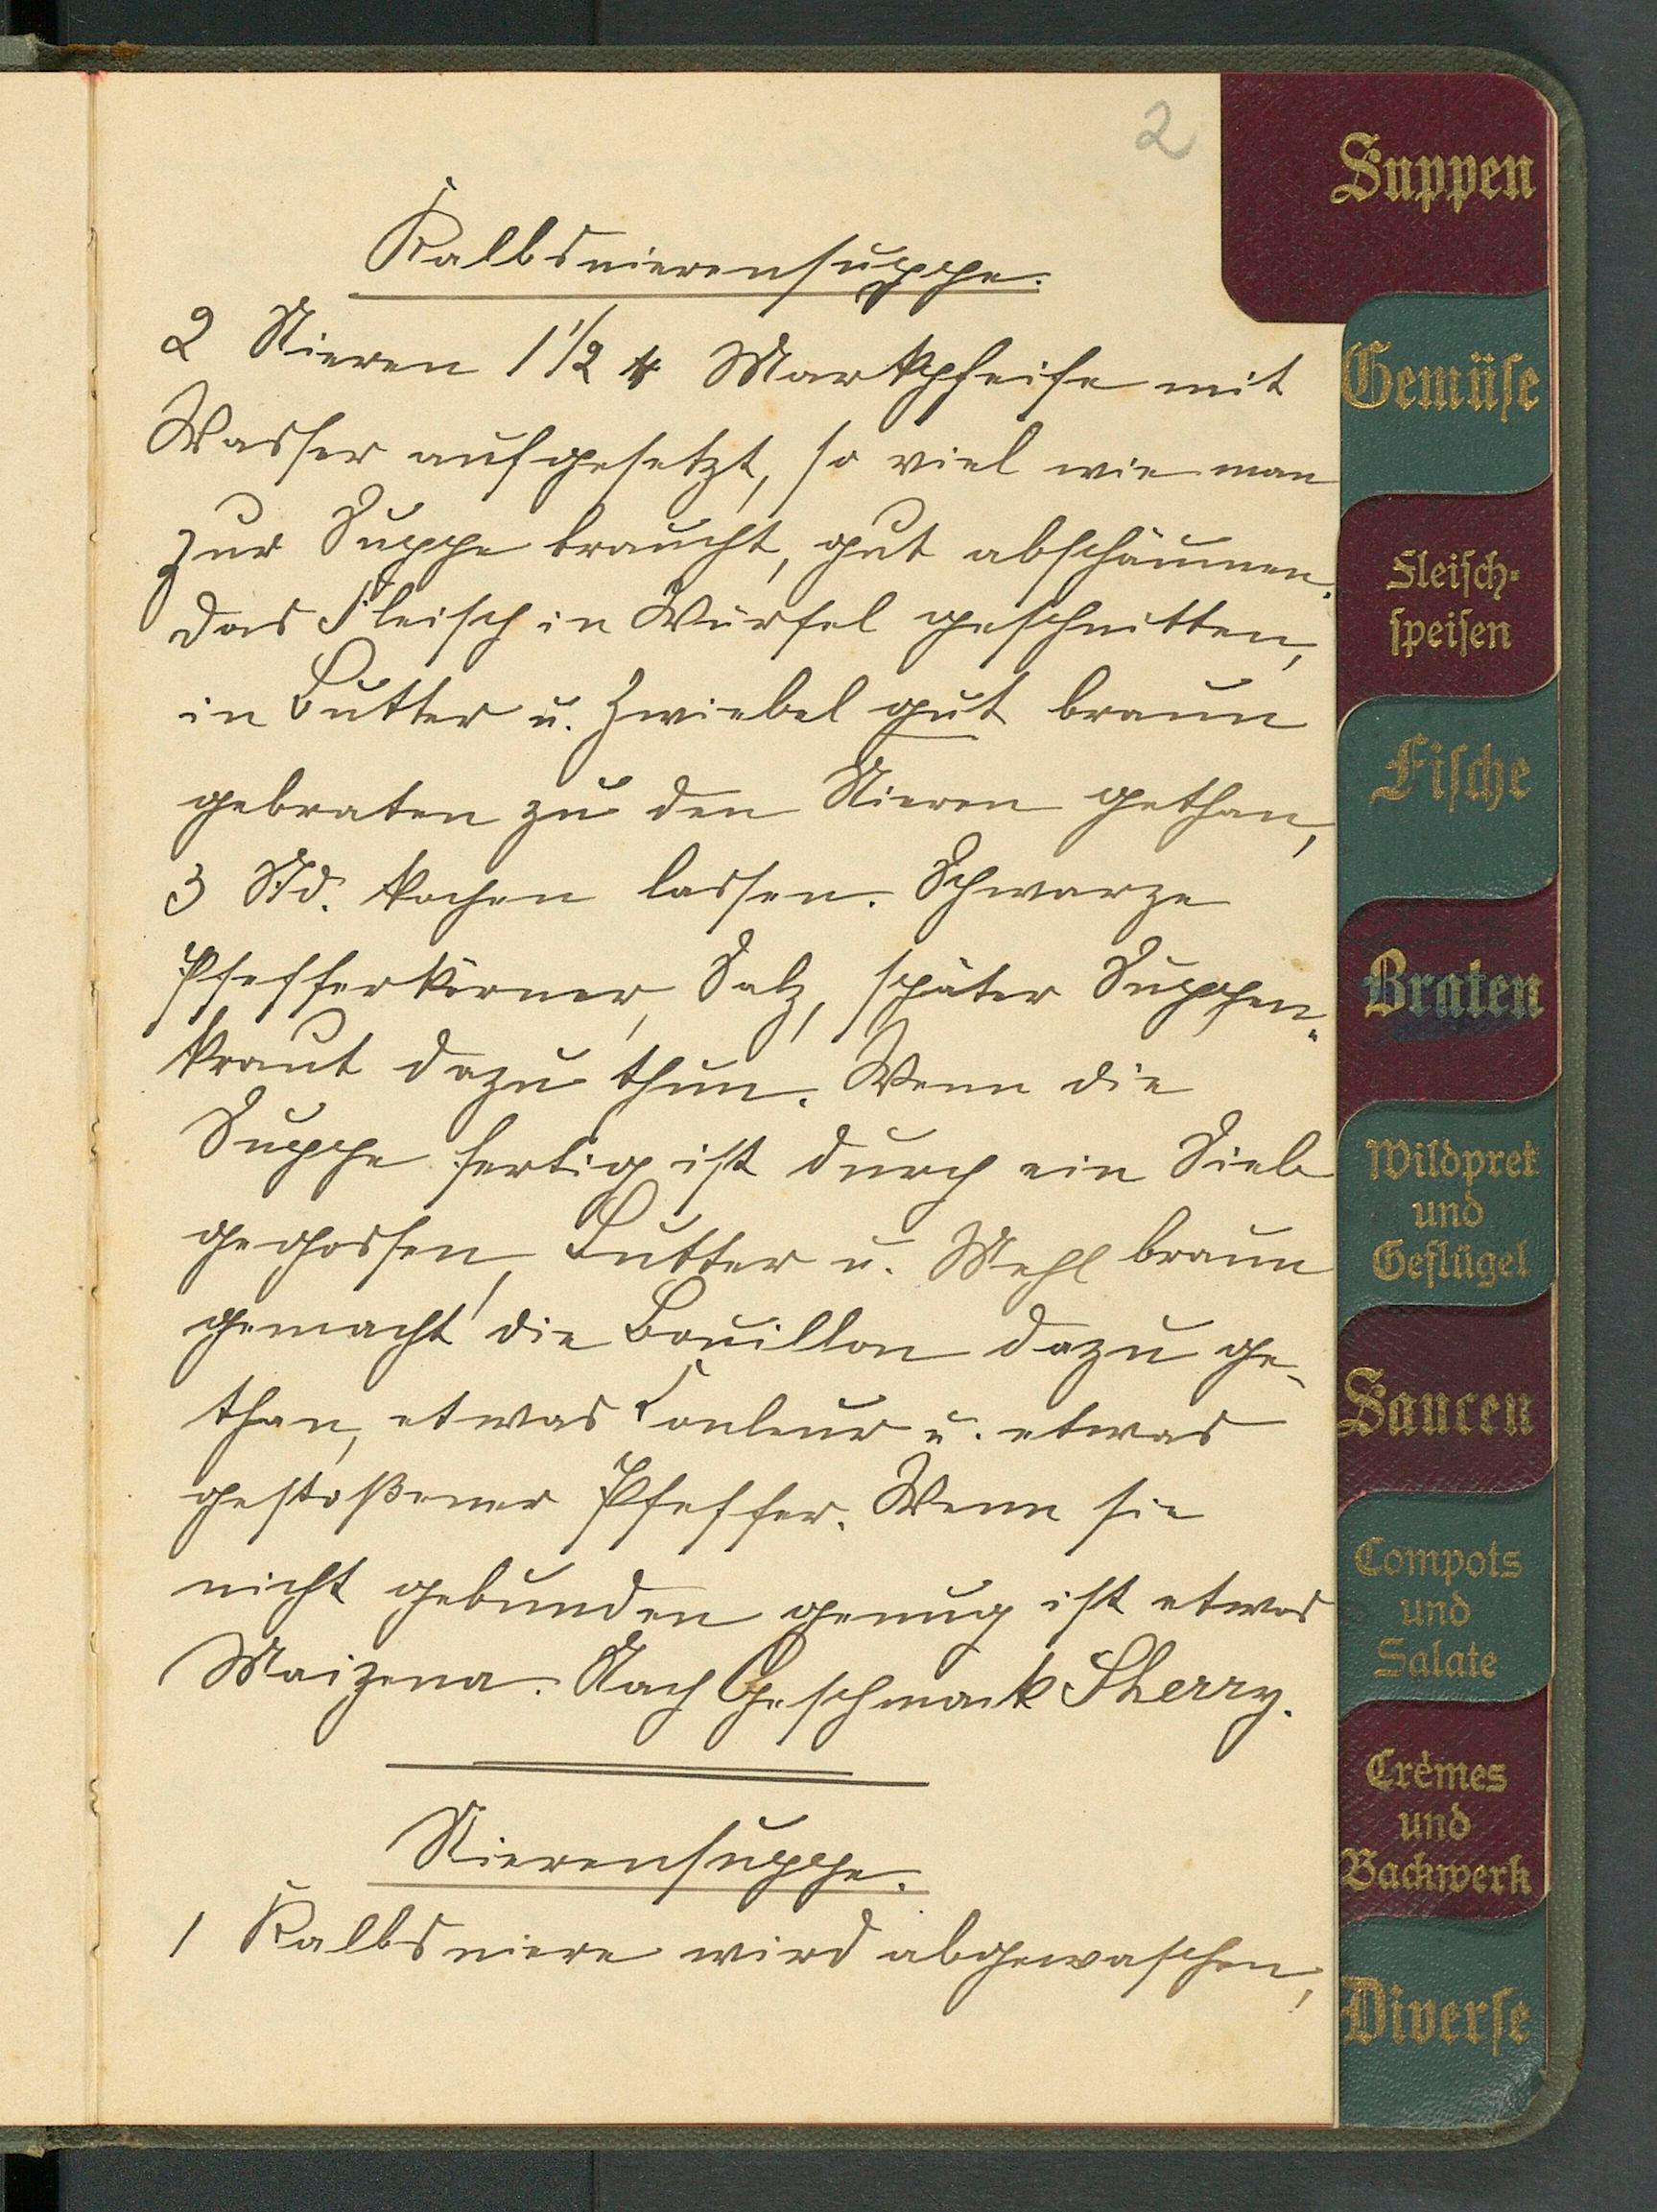 2
Kalbsnierensuppe.
2 Nieren 1 1/2 ℔ Markpfeife mit
Wasser aufgesetzt, so viel wie man
zur Suppe braucht, gut abschäumen.
das Fleisch in Würfel geschnitten,
in Butter u. Zwiebel gut braun
gebraten zu den Nieren gethan,
3 Std. kochen lassen. Schwarze
Pfefferkörner, Salz, später Suppen-
kraut dazu thun. Wenn die
Suppe fertig ist durch ein Sieb
gegossen, Butter u. Mehl braun
gemacht die Bouillon dazu ge-
than, etwas Couleur u. etwas
gestoßener Pfeffer. Wenn sie
nicht gebunden genug ist etwas
Maizena. Nach Geschmack Sherry.
Nierensuppe.
1 Kalbsniere wird abgewaschen,
Suppen
Gemüse
Fleisch-
speisen
Fische
Braten
Wildpret
und
Geflügel
Saucen
Compots
und
Salate
Crêmes
und
Backwerk
Diverse